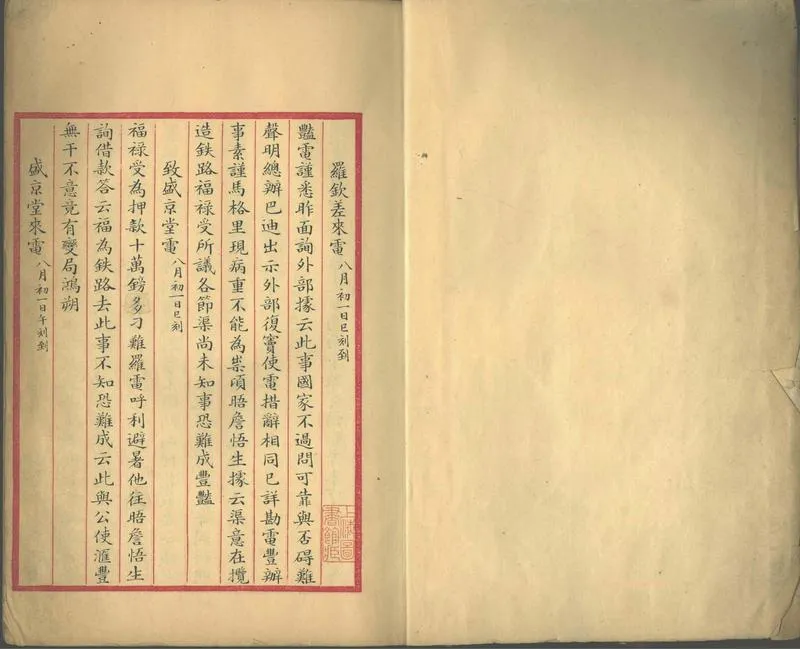 羅欽差來電八月初一日巳刻到
豔電謹悉昨面詢外部據云此事國家不過問可靠與否礙難
聲明總辦巴迪出示外部復竇使電措辭相同已詳勘電豐辦
事素謹馬格里現病重不能為祟頃晤詹悟生據云渠意在攬
造鉄路福祿受所議各節渠尚未知事恐難成豐豔
致盛京堂電八月初一日巳刻
福祿受為押款十萬鎊多刁難羅電呼利避暑他往晤詹悟生
詢借款答云福為鉄路去此事不知恐難成云此與公使滙豐
無干不意竟有變局鴻朔
盛京堂來電八月初一日午刻到
上海圖
書館藏